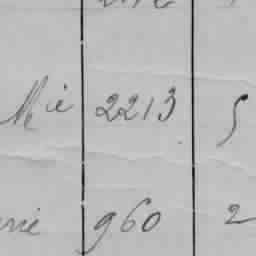 Mie 2213 5
960 2